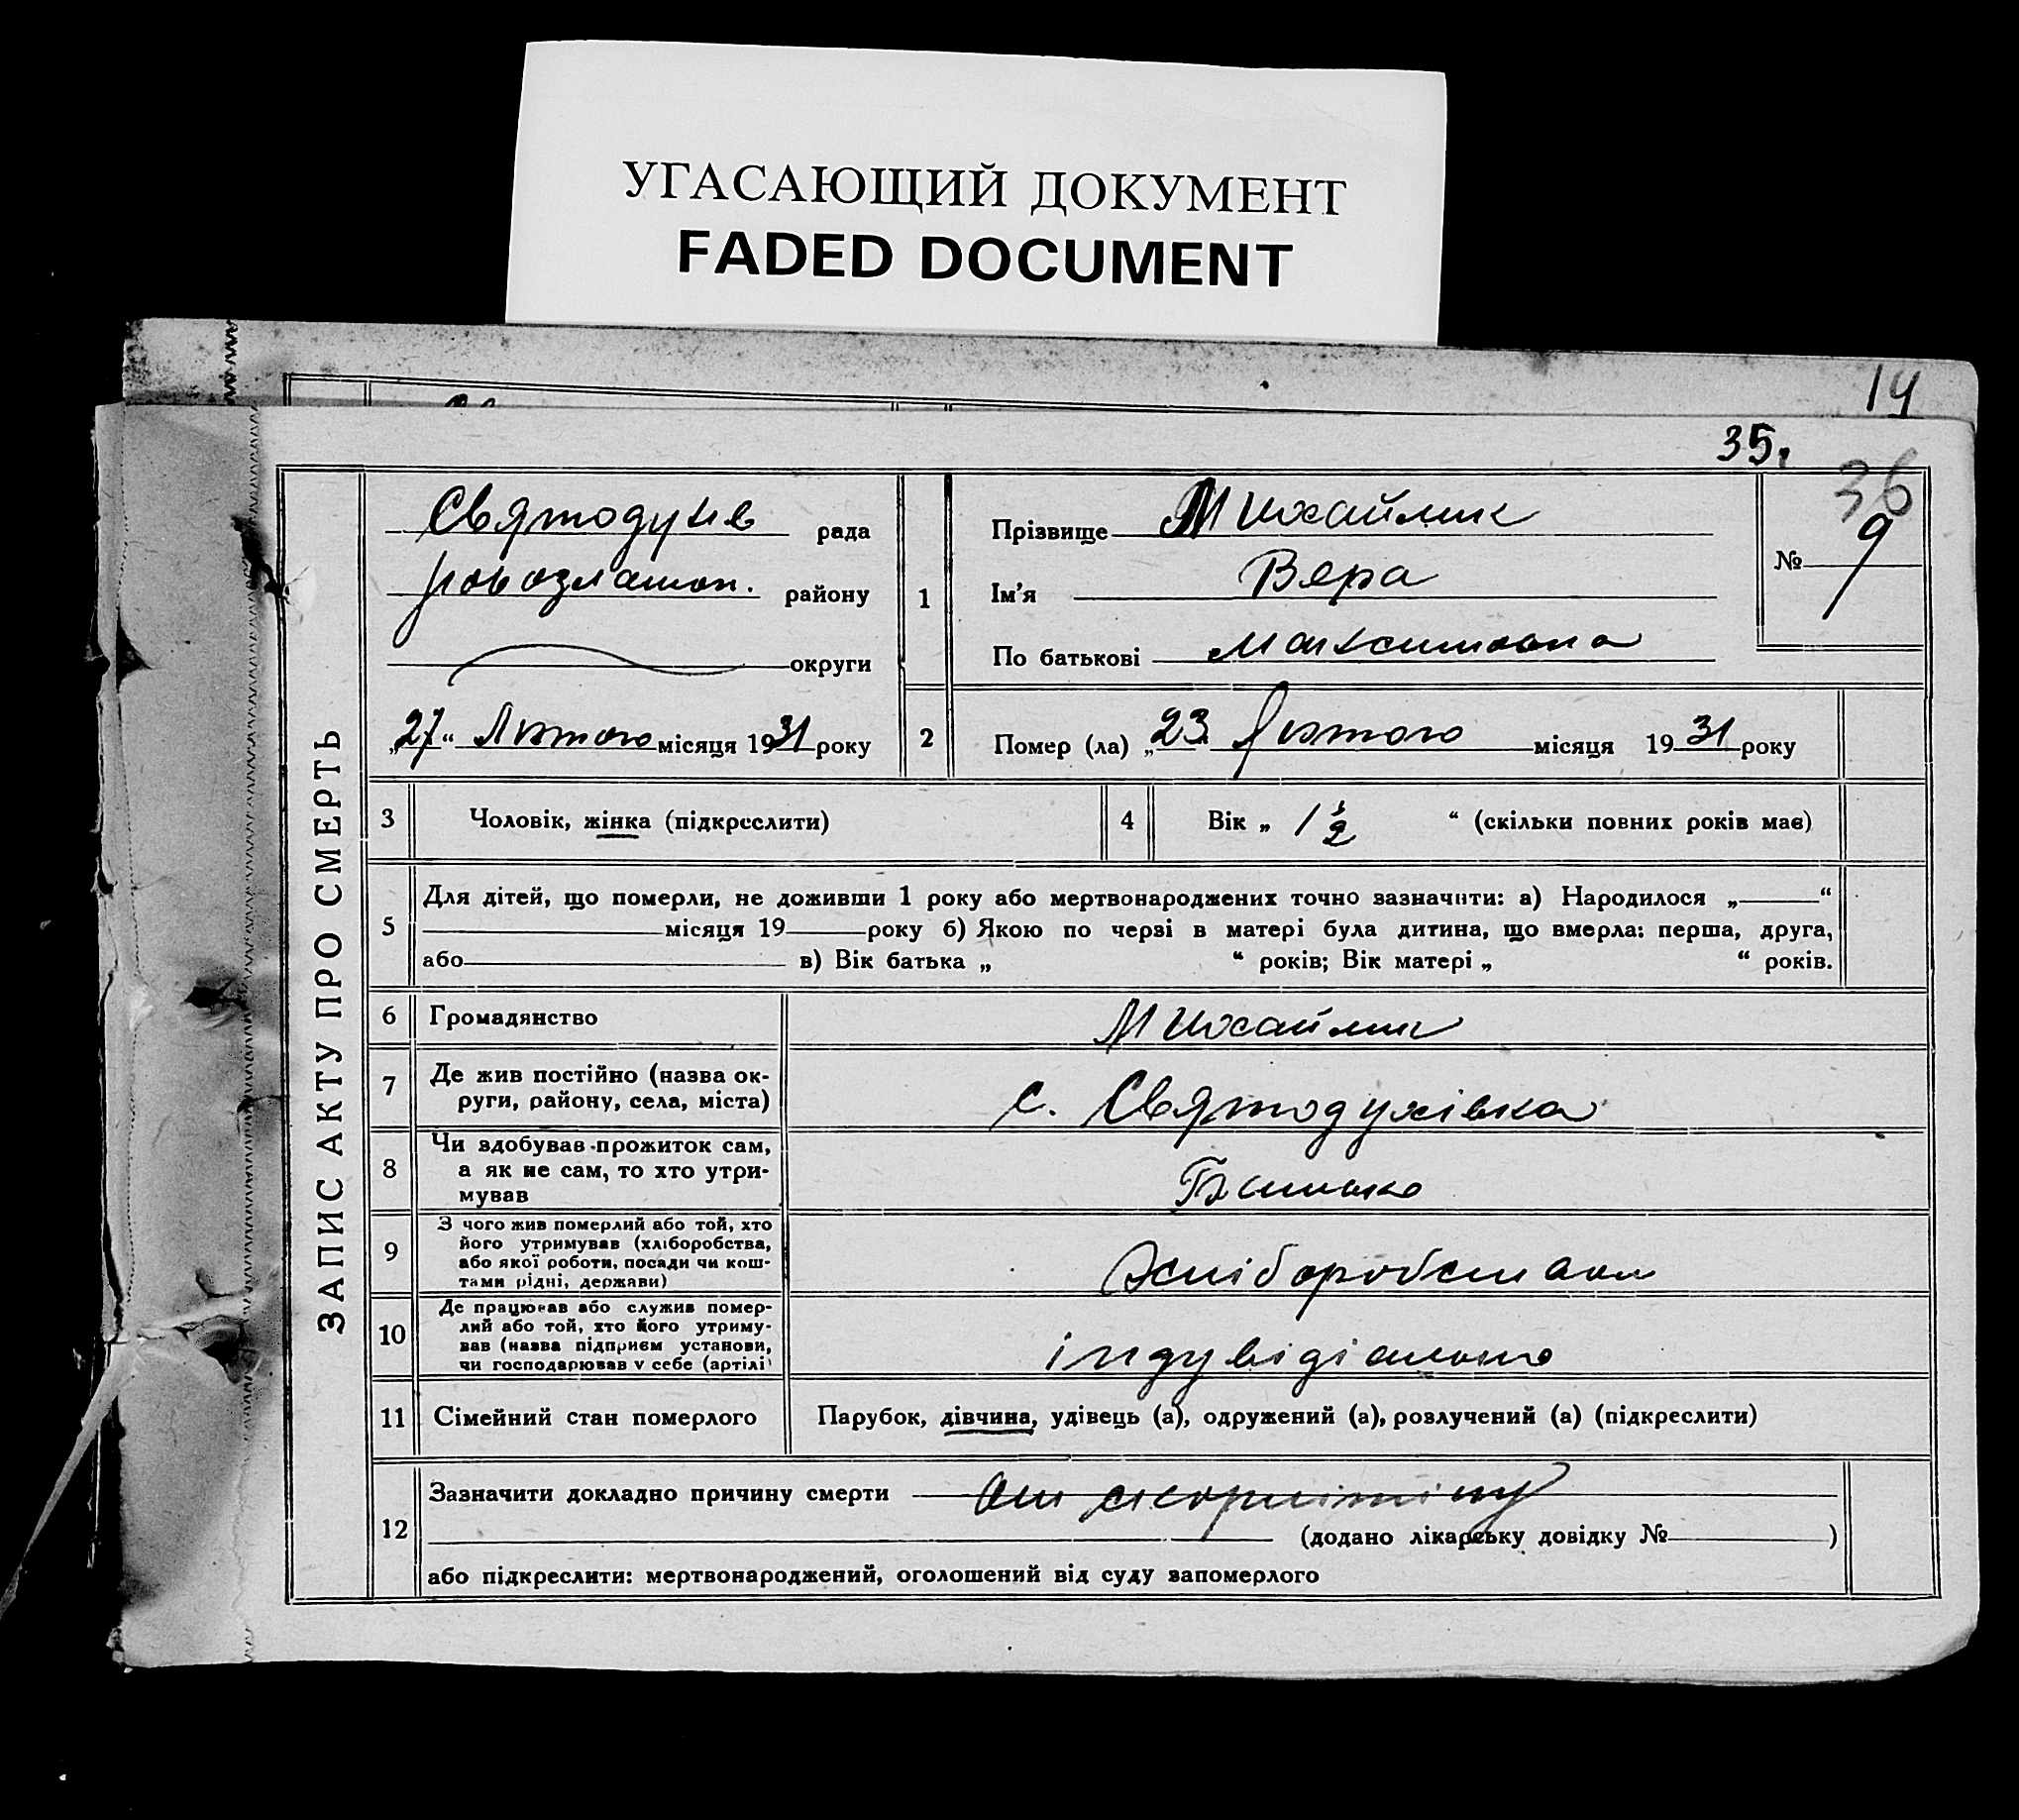 УГАСАЮЩИЙ ДОКУМЕНТ
FADED DOCUMENT
14
35.
36
ЗАПИС АКТУ ПРО СМЕРТЬ
Святодухів рада
району
округи
„27“ Лютого місяця 1931 року
1
Прізвище Михайлик
Ім'я Вера
По батькові Максимовна
№ 9
2
Помер (ла) „23“ Лютого місяця 1931 року
3
Чоловік, жінка (підкреслити)
4
Вік „ 1 1/2 “ (скільки повних років має)
5
Для дітей, що померли, не доживши 1 року або мертвонароджених точно зазначити: а) Народилося „ “
місяця 19 року б) Якою по черзі в матері була дитина, що вмерла: перша, друга,
або в) Вік батька „ “ років; Вік матері „ “ років.
6
Громадянство
Михайлик
7
Де жив постійно (назва ок-
руги, району, села, міста)
с. Святодухівка
8
Чи здобував прожиток сам,
а як не сам, то хто утри-
мував
Батько
9
З чого жив померлий або той, хто
його утримував (хліборобства,
або якої роботи, посади чи кош-
тами рідні, держави)
10
Де працював або служив помер-
лий або той, хто його утриму-
вав (назва підприєм установи,
чи господарював у себе (артілі)
індувідіально
11
Сімейний стан померлого
Парубок, дівчина, удівець (а), одружений (а), розлучений (а) (підкреслити)
12
Зазначити докладно причину смерти
(додано лікарську довідку № )
або підкреслити: мертвонароджений, оголошений від суду запомерлого